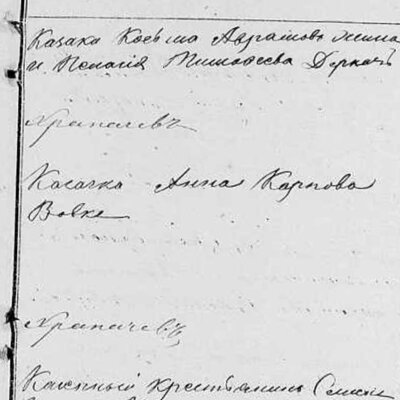 Казакъ Косьма Аврамовъ
и Пелагія Тимофеева Деркачъ
Храпачевъ
Казачка Анна Карпова
Вовке
Храпачевъ
Казенный крестьянинъ Семенъ